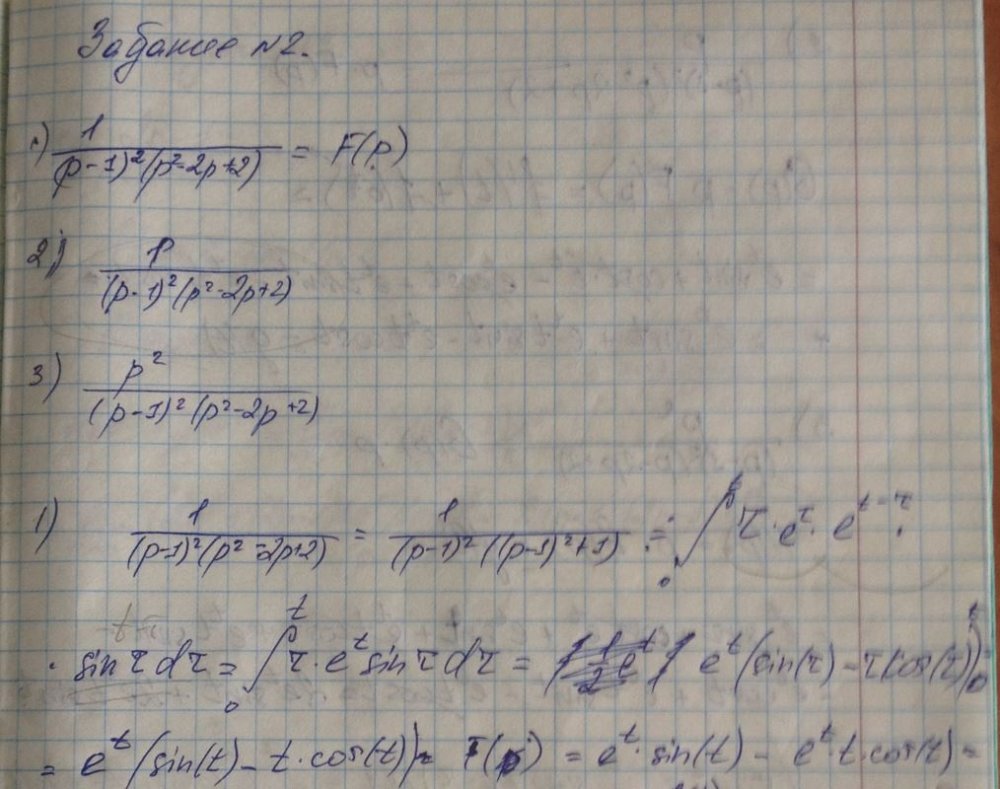 Задание №2.
1) 1/((p-1)²(p²-2p+2)) = F(p)
2) p/((p-1)²(p²-2p+2))
3) p²/((p-1)²(p²-2p+2))
1) 1/((p-1)²(p²-2p+2)) = 1/((p-1)²((p-1)²+1)) = ∫₀ᵗ τ·e^τ·e^(t-τ)·
· sin τ dτ = ∫₀ᵗ τ·e^t sin τ dτ = e^t (sin(τ) - τ cos(τ))|₀ᵗ
= e^t (sin(t) - t·cos(t)) = e^t·sin(t) - e^t·t·cos(t) =